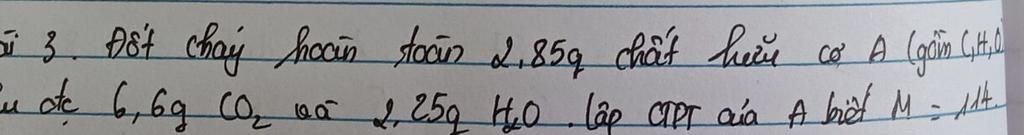 3. Đốt cháy hoàn toàn 2,85g chất hữu cơ A (gồm C,H,O
đc 6,6g CO₂ và 2,25g H₂O. lập CTPT của A biết M = 114.